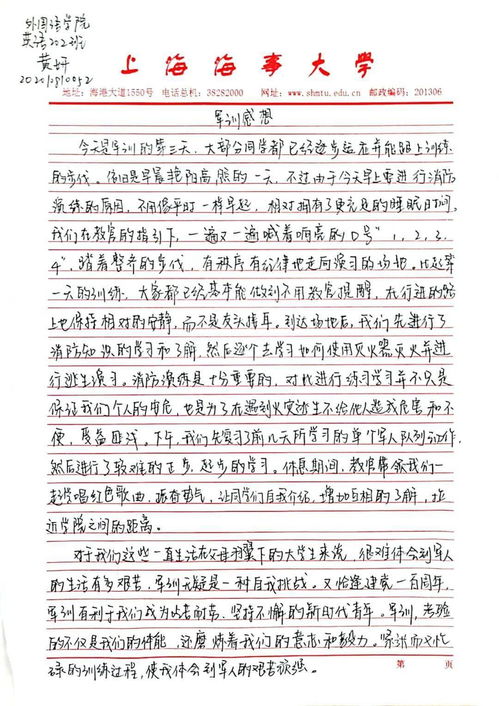 外国语学院
英语202班
黄妍
上海海事大学
地址：海港大道1550号 电话总机：38282000 网址：www.shmtu.edu.cn 邮政编码：201306
军训感想
今天是军训的第三天，大部分同学都已经逐步适应并能跟上训练
的步伐。依旧是早晨艳阳高照的一天，不过由于今天早上要进行消防
演练的原因，不用像平时一样早起，相对拥有了更充足的睡眠时间。
我们在教官的指引下，一遍又一遍喊着响亮的口号"1，2，3，
4"，踏着整齐的步伐，有秩序有纪律地走向演习的场地。比起第
一天的训练，大家都已经基本能做到不用教官提醒，在行进的路
上也保持相对的安静，而不是交头接耳。到达场地后，我们先进行了
消防知识的学习和了解，然后逐个去学习如何使用灭火器灭火并进
行逃生演习。消防演练是十分重要的，对此进行练习学习并不只是
保证我们个人的安危，也是为了在遇到火灾逃生不给他人造成危害和不
便，受益匪浅。下午，我们先复习了前几天所学习的单个军人队列动作，
然后进行了较难的正步、起步的学习。休息期间，教官带领我们一
起学唱红色歌曲，振奋勇气，让同学们自我介绍，增加互相的了解，拉
近学院之间的距离。
对于我们这些一直生活在父母羽翼下的大学生来说，很难体会到军人
的生活有多艰苦，军训无疑是一种自我挑战。又恰逢建党一百周年，
军训有利于我们成为吃苦耐劳、坚持不懈的新时代青年。军训，考验
的不仅是我们的体能，还磨炼着我们的意志和毅力。紧张而又忙
碌的训练过程，使我体会到军人的艰苦顽强。
第 页